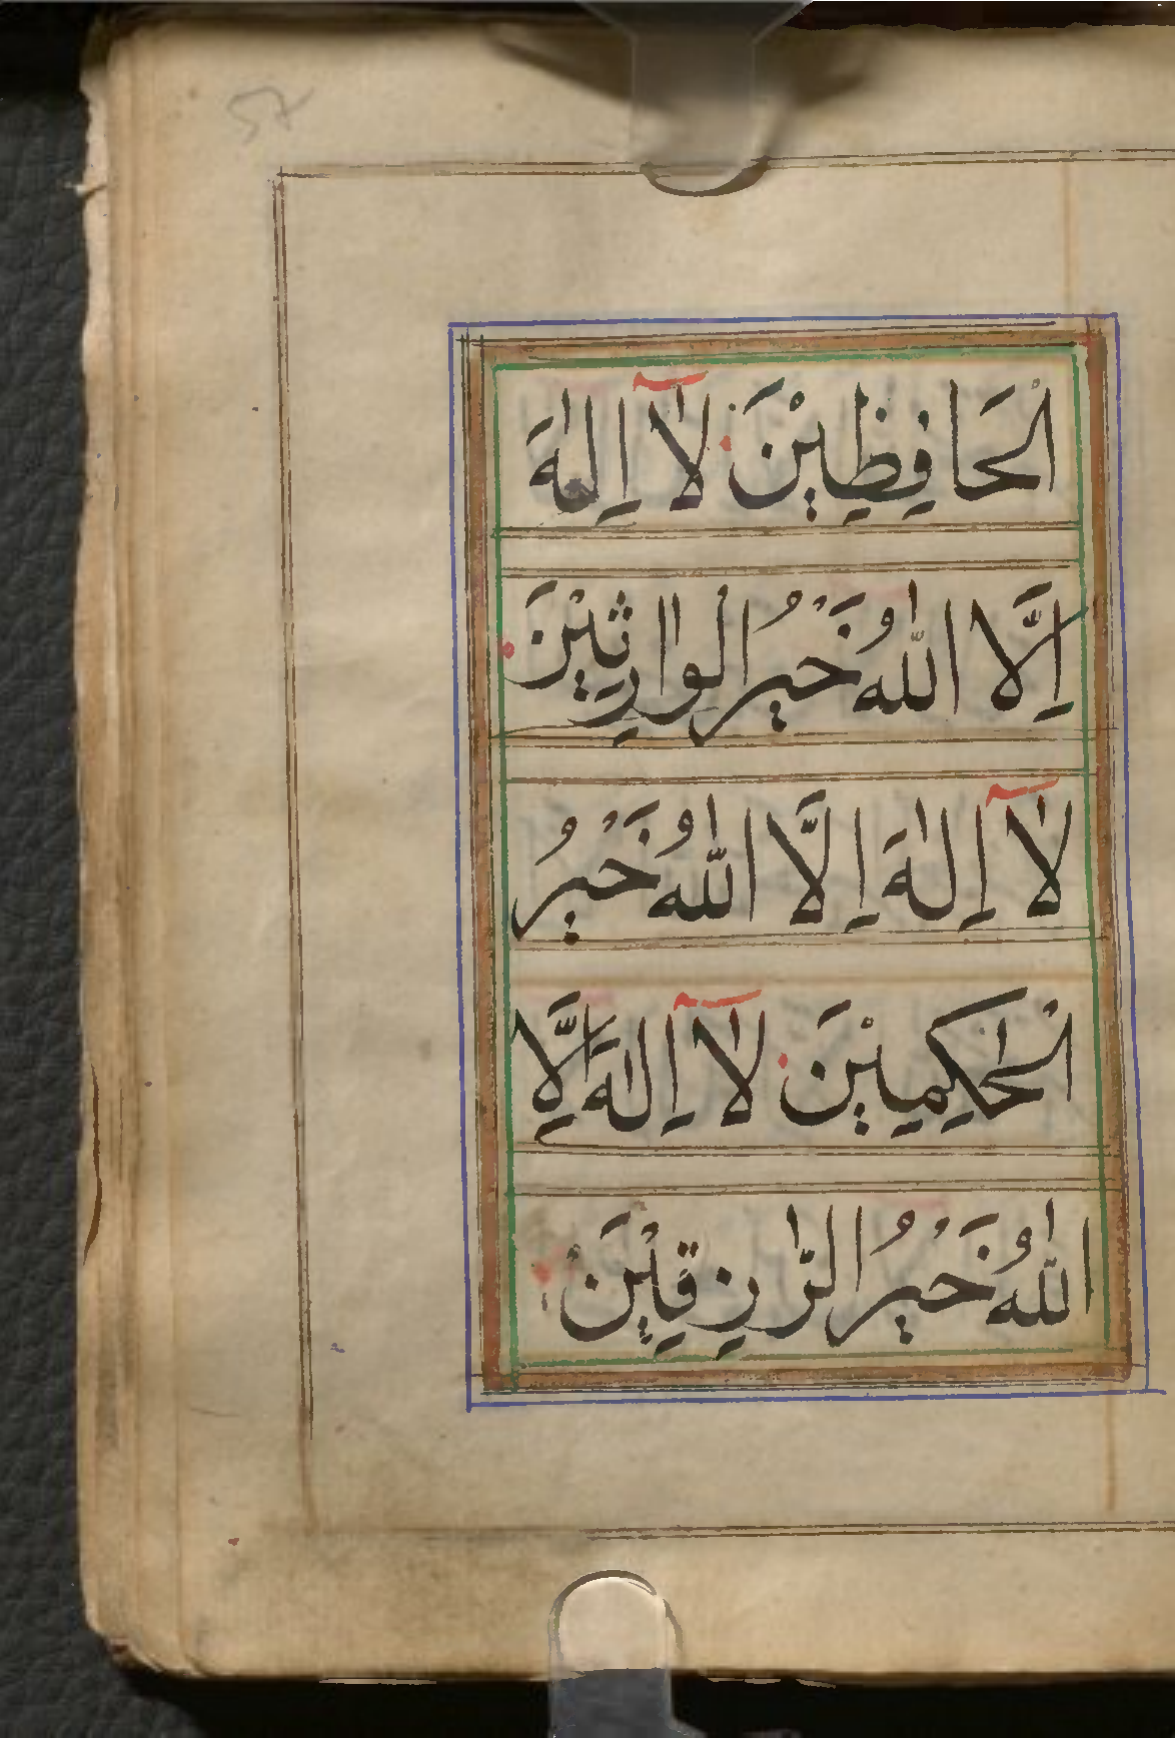 57
الْحَافِظِيْنَ لَآ اِلٰهَ
اِلَّا اللّٰهُ خَيْرُ الْوَارِثِيْنَ
لَآ اِلٰهَ اِلَّا اللّٰهُ خَيْرُ
الْحٰكِمِيْنَ لَآ اِلٰهَ اِلَّا
اللّٰهُ خَيْرُ الرّٰزِقِيْنَ